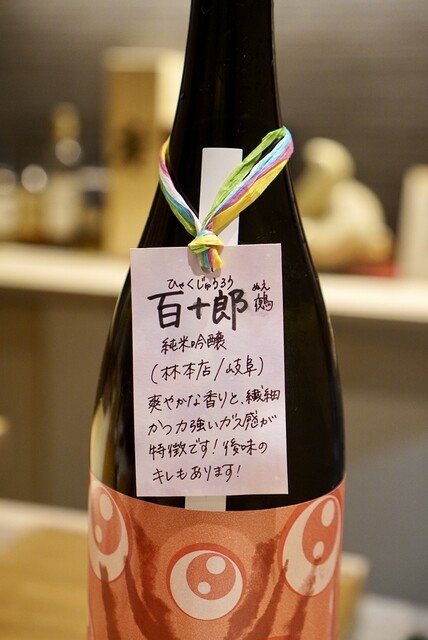 ひゃくじゅうろう ぬえ
百十郎 鵺
純米吟醸
(林本店/岐阜)
爽やかな香りと、繊細
かつ力強いガス感が
特徴です！後味の
キレもあります！